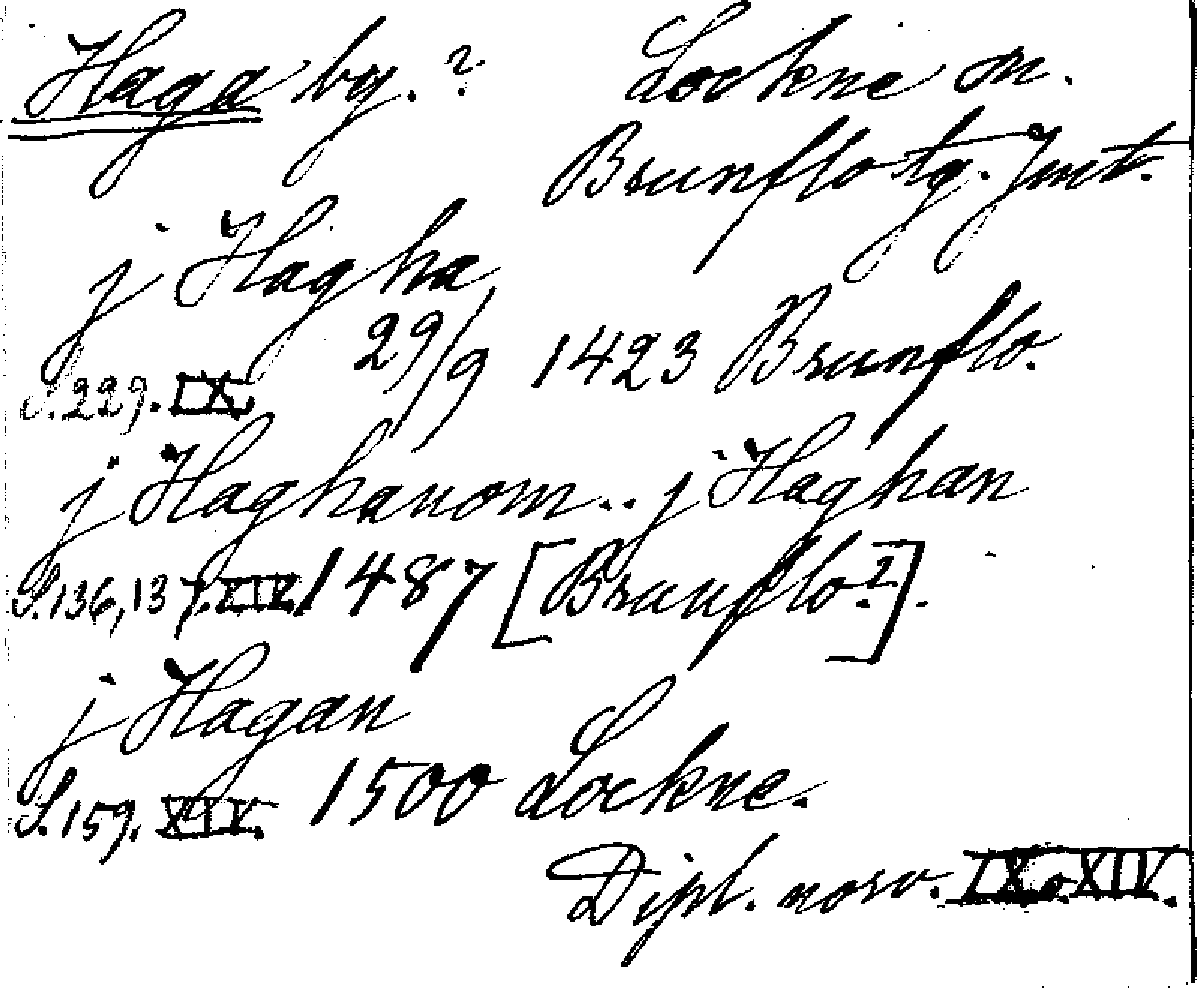 Haga by.? Lockne sn.
Brunflo tg. Jmt.
j Hagha
29/9 1423 Brunflo.
S. 229. IX.
j Haghanom.. j Haghan
S. 136, 137. XIV. 1487 [Brunflo.?].
j Hagan
S. 159. XIV. 1500 Lockne.
Dipl. norv. IX o. XIV.